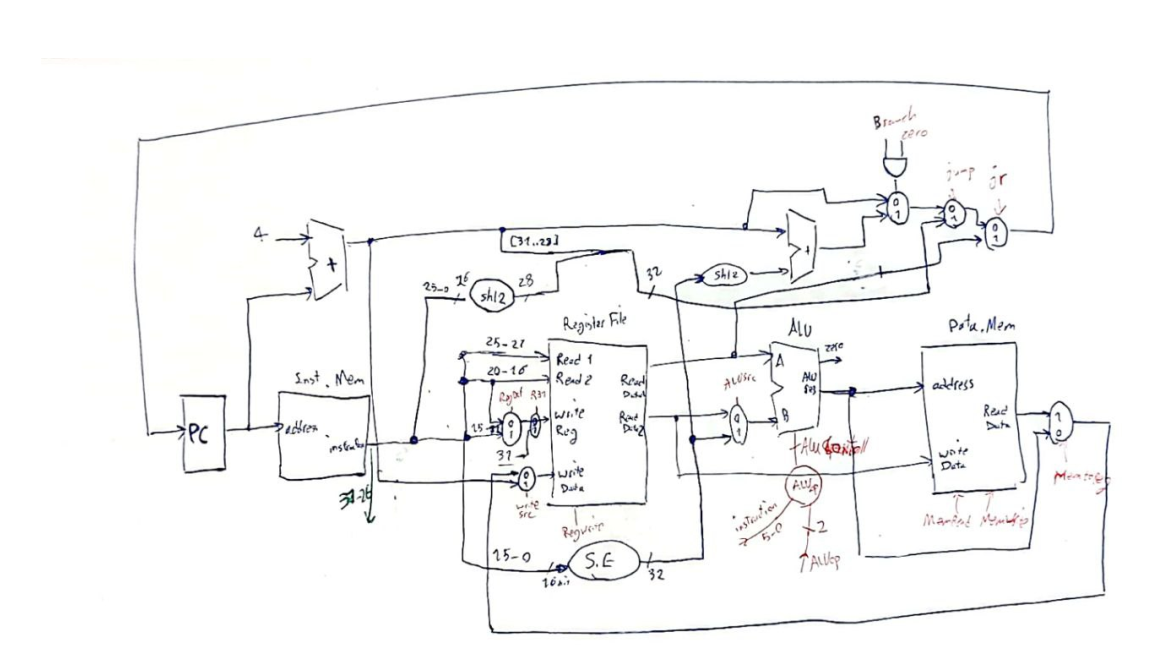 Branch
zero
jump
jr
4
+
[31..28]
25-0
26
sh12
28
32
sh12
+
0
1
0
1
0
1
Register File
ALU
Data.Mem
Inst. Mem
PC
address
31-26
25-21
20-16
15-11
31
Regdst
R31
0
1
Read 1
Read 2
Write
Reg
Write
Data
Read
Data1
Read
Data2
0
1
write
src
Regwrite
ALUsrc
0
1
A
B
zero
ALU
Res
ALUop
instruction
5-0
2
ALUop
address
Read
Data
Write
Data
MemRead
1
0
15-0
16bit
S.E
32